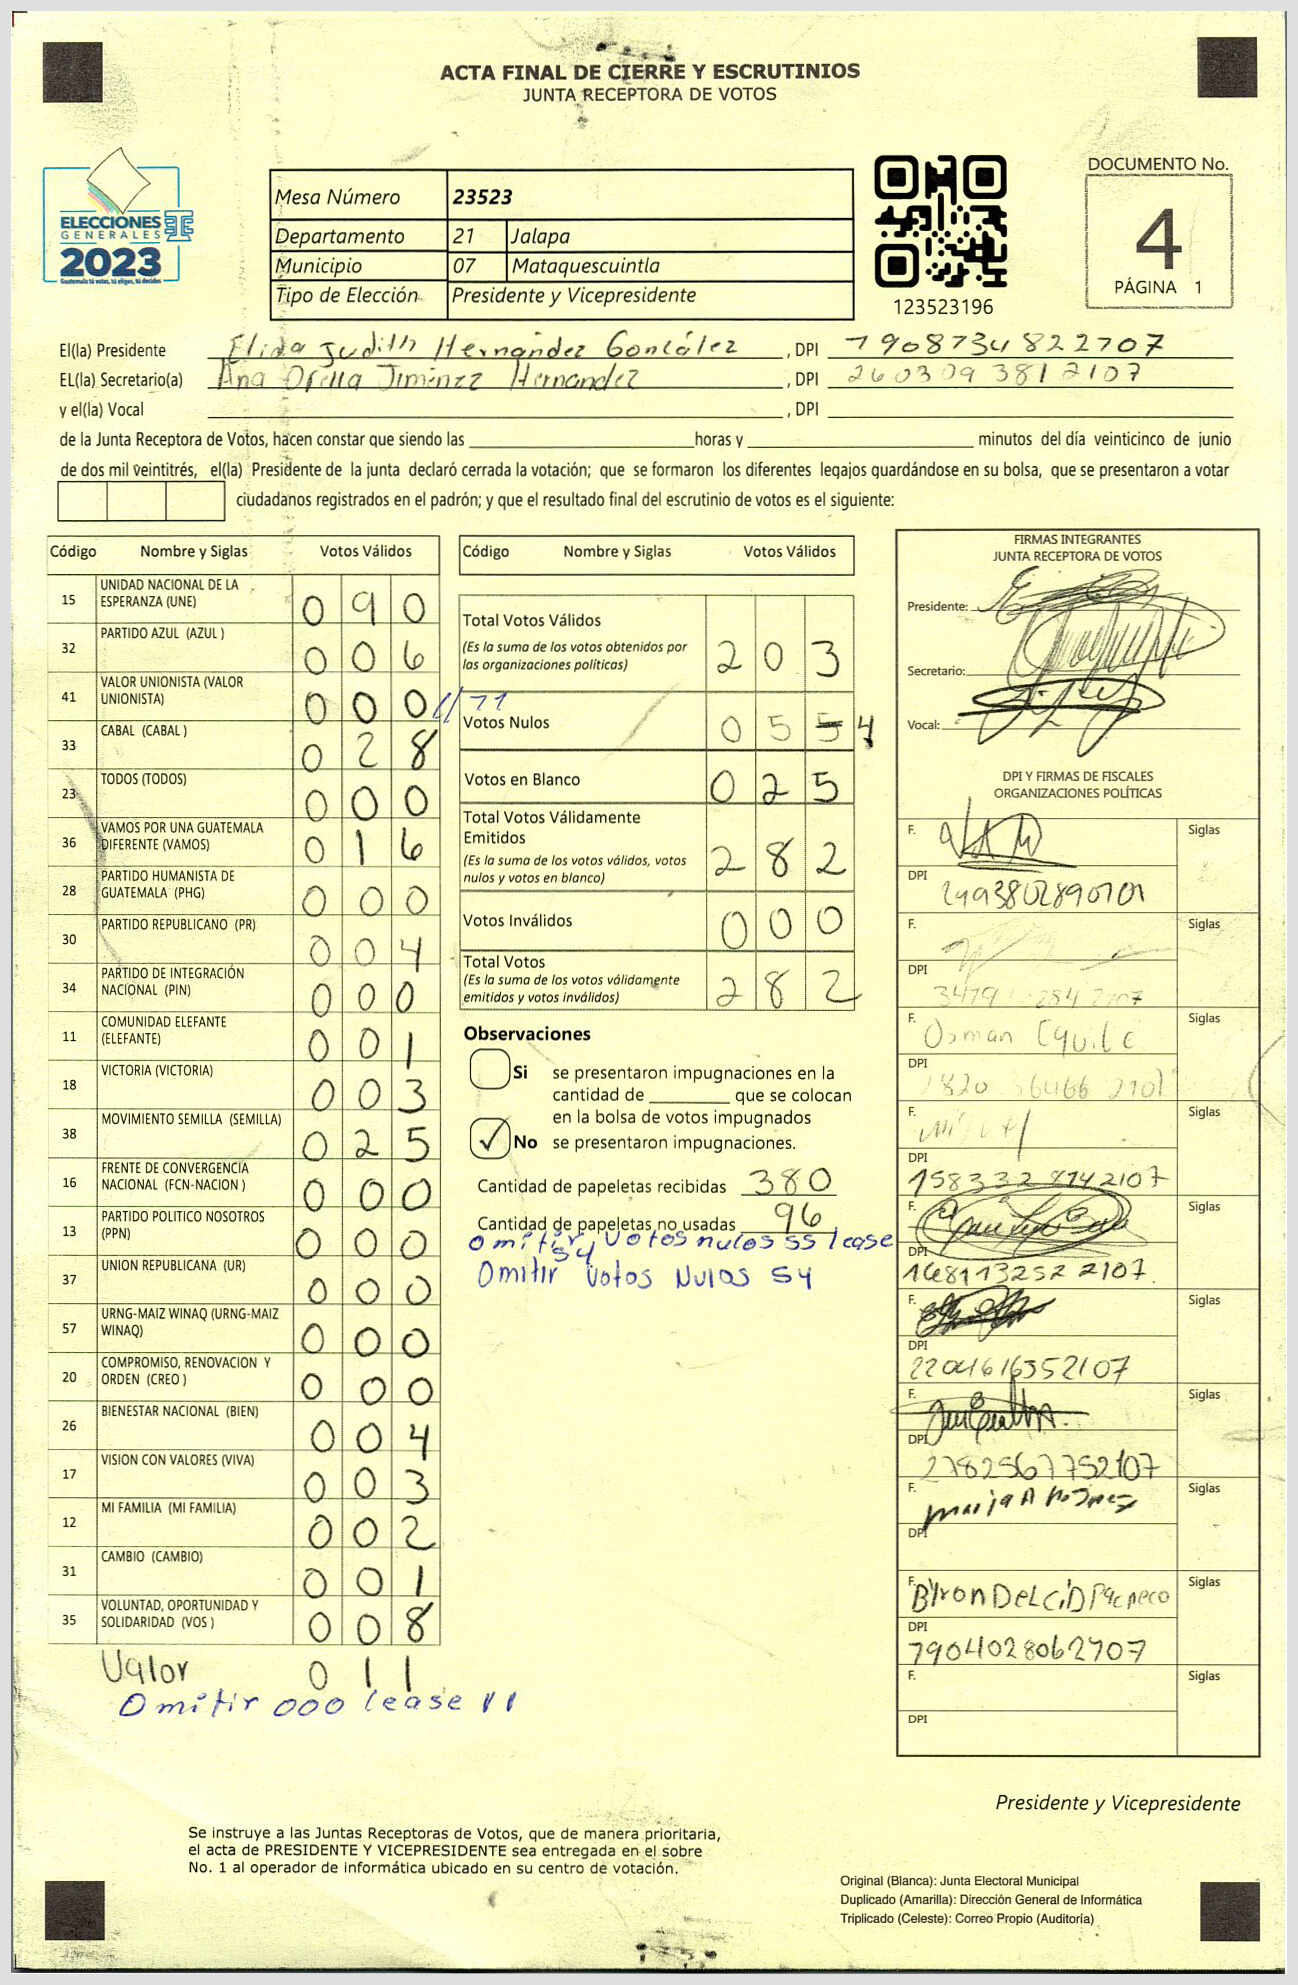 ACTA FINAL DE CIERRE Y ESCRUTINIOS
JUNTA RECEPTORA DE VOTOS
ELECCIONES
GENERALES
2023
Mesa Número 23523
Departamento 21 Jalapa
Municipio 07 Mataquescuintla
Tipo de Elección Presidente y Vicepresidente
123523196
DOCUMENTO No.
4
PÁGINA 1
El(la) Presidente Elida Judith Hernández González , DPI 1908734822107
EL(la) Secretario(a) Ana Ofelia Jiménez Hernandez , DPI 2603093812107
y el(la) Vocal , DPI
de la Junta Receptora de Votos, hacen constar que siendo las horas y minutos del día veinticinco de junio
de dos mil veintitrés, el(la) Presidente de la junta declaró cerrada la votación; que se formaron los diferentes legajos guardándose en su bolsa, que se presentaron a votar
ciudadanos registrados en el padrón; y que el resultado final del escrutinio de votos es el siguiente:
Código Nombre y Siglas Votos Válidos
15 UNIDAD NACIONAL DE LA
ESPERANZA (UNE) 0 9 0
32 PARTIDO AZUL (AZUL ) 0 0 6
41 VALOR UNIONISTA (VALOR
UNIONISTA) 0 0 0 // 11
33 CABAL (CABAL ) 0 2 8
23 TODOS (TODOS) 0 0 0
36 VAMOS POR UNA GUATEMALA
DIFERENTE (VAMOS) 0 1 6
28 PARTIDO HUMANISTA DE
GUATEMALA (PHG) 0 0 0
30 PARTIDO REPUBLICANO (PR) 0 0 4
34 PARTIDO DE INTEGRACIÓN
NACIONAL (PIN) 0 0 0
11 COMUNIDAD ELEFANTE
(ELEFANTE) 0 0 1
18 VICTORIA (VICTORIA) 0 0 3
38 MOVIMIENTO SEMILLA (SEMILLA) 0 2 5
16 FRENTE DE CONVERGENCIA
NACIONAL (FCN-NACION ) 0 0 0
13 PARTIDO POLITICO NOSOTROS
(PPN) 0 0 0
37 UNION REPUBLICANA (UR) 0 0 0
57 URNG-MAIZ WINAQ (URNG-MAIZ
WINAQ) 0 0 0
20 COMPROMISO, RENOVACION Y
ORDEN (CREO ) 0 0 0
26 BIENESTAR NACIONAL (BIEN) 0 0 4
17 VISION CON VALORES (VIVA) 0 0 3
12 MI FAMILIA (MI FAMILIA) 0 0 2
31 CAMBIO (CAMBIO) 0 0 1
35 VOLUNTAD, OPORTUNIDAD Y
SOLIDARIDAD (VOS ) 0 0 8
Valor 0 1 1
Omitir 000 lease 11
Código Nombre y Siglas Votos Válidos
Total Votos Válidos
(Es la suma de los votos obtenidos por
las organizaciones políticas) 2 0 3
Votos Nulos 0 5 5 4
Votos en Blanco 0 2 5
Total Votos Válidamente
Emitidos
(Es la suma de los votos válidos, votos
nulos y votos en blanco) 2 8 2
Votos Inválidos 0 0 0
Total Votos
(Es la suma de los votos válidamente
emitidos y votos inválidos) 2 8 2
Observaciones
Si se presentaron impugnaciones en la
cantidad de que se colocan
en la bolsa de votos impugnados
No se presentaron impugnaciones.
Cantidad de papeletas recibidas 380
Cantidad de papeletas no usadas 96
Omitir votos nulos 55 lease
54
Omitir Votos Nulos 54
FIRMAS INTEGRANTES
JUNTA RECEPTORA DE VOTOS
Presidente:
Secretario:
Vocal:
DPI Y FIRMAS DE FISCALES
ORGANIZACIONES POLÍTICAS
F. Siglas
DPI
F. Siglas
DPI
F. Osman Siglas
DPI
F. Siglas
DPI 1583328142107
F. Siglas
DPI 1681132522107
F. Siglas
DPI 2204616352107
F. Siglas
DPI 2782567752107
F. Siglas
DPI
F. Byron Del Cid Pacheco Siglas
DPI 7904028062707
F. Siglas
DPI
Presidente y Vicepresidente
Se instruye a las Juntas Receptoras de Votos, que de manera prioritaria,
el acta de PRESIDENTE Y VICEPRESIDENTE sea entregada en el sobre
No. 1 al operador de informática ubicado en su centro de votación.
Original (Blanca): Junta Electoral Municipal
Duplicado (Amarilla): Dirección General de Informática
Triplicado (Celeste): Correo Propio (Auditoría)